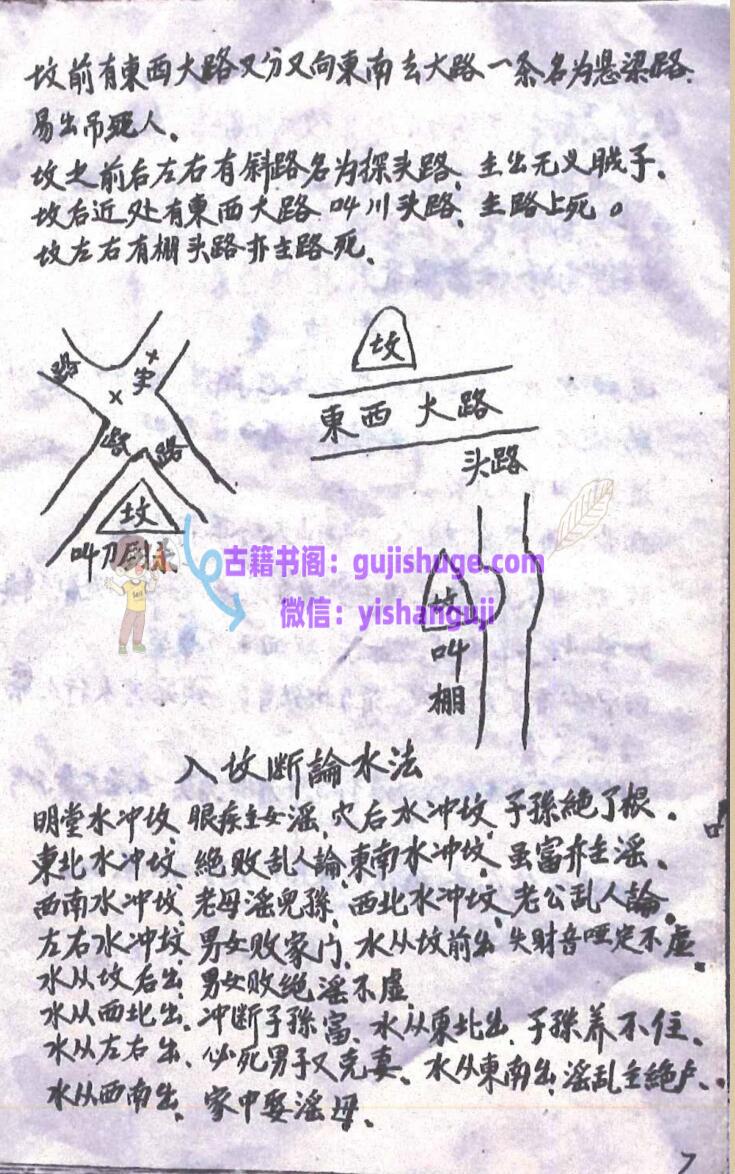 坟前有東西大路又分叉向東南去大路一条名为悬梁路.
易出吊死人.
坟之前后左右有斜路名为探头路、主出无义贱子.
坟后近处有東西大路叫川头路、主路上死。
坟左右有棚头路亦主路死、
路 × 字
×
路
坟
叫刀剧
坟
東西 大路
头路
坟
叫
棚
古籍书阁：gujishuge.com
微信：yishanguji
入坟断論水法
明堂水冲坟、眼疾主女淫、穴后水冲坟、子孫絶了根.
東北水冲坟、絶败乱人論、東南水冲坟、虽富亦主淫、
西南水冲坟、老母淫兒孫、西北水冲坟、老公乱人論、
左右水冲坟、男女败家门、水从坟前出、失财音哑定不虚.
水从坟后出、男女败绝淫不虚、
水从西北出、冲断子孫富、水从東北出、子孫养不住、
水从左右出、必死男子又克妻、水从東南出、淫乱主絶户、
水从西南出、家中娶淫母、
7